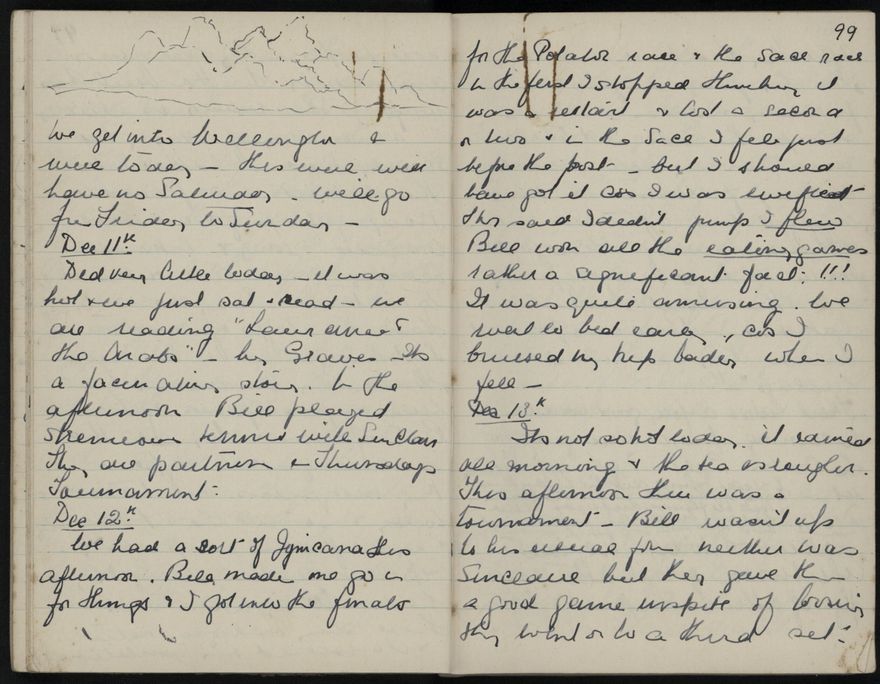 We get into Wellington &
were today — this week will
have no Saturday. We'll go
from Friday to Sunday —
Dec 11th.
Did very little today — it was
hot & we just sat & read — we
are reading "Lawrence &
the Arabs" — by Graves. Its
a fascinating story. In the
afternoon Bill played
strenuous tennis with Sinclair
They are partners in Thursdays
Tournament.
Dec 12th.
We had a sort of Jymcana this
afternoon. Bill made me go in
for things & I got into the finals
99
for the Potato race & the Sack race
In the first I stopped thinking it
was a restart & lost a second
or two & in the Sack I fell just
before the post — but I should
have got it cos I was
They said I didn't jump I flew
Bill won all the eating games
rather a significant fact: !!!
It was quite amusing. We
went to bed early, cos I
bruised my hip badly when I
fell —
Dec 13th.
Its not so hot today. it rained
all morning & the sea is rougher.
This afternoon there was a
tournament — Bill wasn't up
to his usual form neither was
Sinclair but they gave them
a good game inspite of losing
They went on to a third set.